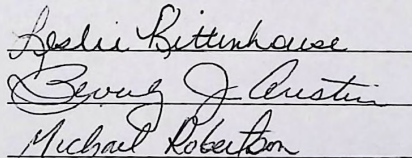 Leslie Rittenhouse
Beverly J Austin
Michael Robertson